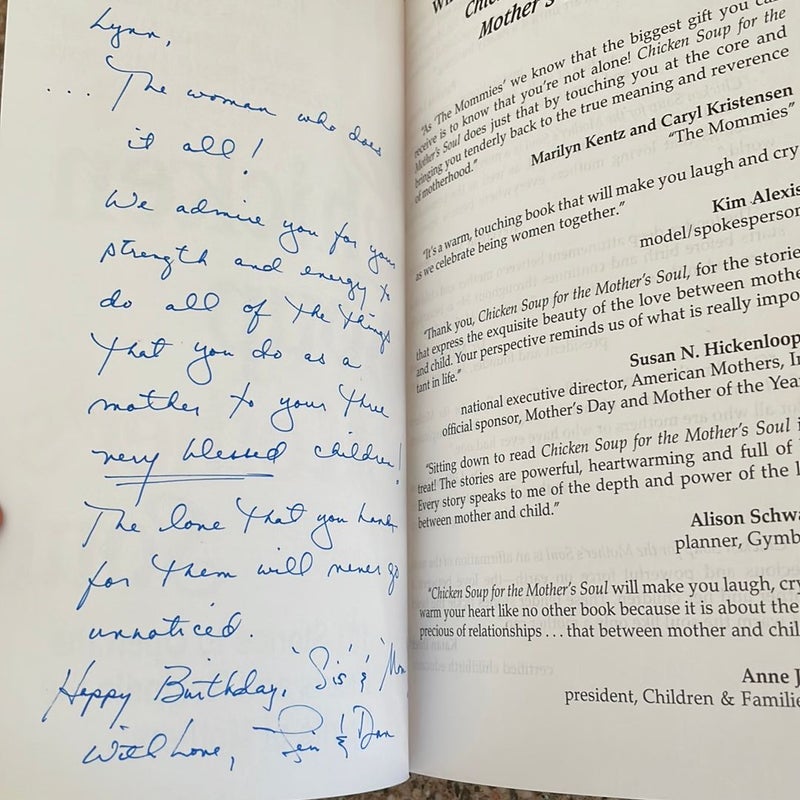 Lynn,
... The woman who does
it all!
We admire you for your
strength and energy to
do all of the things
that you do as a
mother to your three
very blessed children!
The love that you have
for them will never go
unnoticed.
Happy Birthday, 'Sis' & 'Mom
With Love, & Dan
Chicken
Mother's
"As 'The Mommies' we know that the biggest gift you can
receive is to know that you're not alone! Chicken Soup for the
Mother's Soul does just that by touching you at the core and
bringing you tenderly back to the true meaning and reverence
of motherhood."
Marilyn Kentz and Caryl Kristensen
"The Mommies"
"It's a warm, touching book that will make you laugh and cry
as we celebrate being women together."
Kim Alexis
model/spokesperson
"Thank you, Chicken Soup for the Mother's Soul, for the stories
that express the exquisite beauty of the love between mothe
and child. Your perspective reminds us of what is really impo
tant in life."
Susan N. Hickenloop
national executive director, American Mothers, In
official sponsor, Mother's Day and Mother of the Yea
"Sitting down to read Chicken Soup for the Mother's Soul i
treat! The stories are powerful, heartwarming and full of
Every story speaks to me of the depth and power of the l
between mother and child."
Alison Schwa
planner, Gymb
"Chicken Soup for the Mother's Soul will make you laugh, cry
warm your heart like no other book because it is about the
precious of relationships . . . that between mother and chil
Anne J
president, Children & Familie